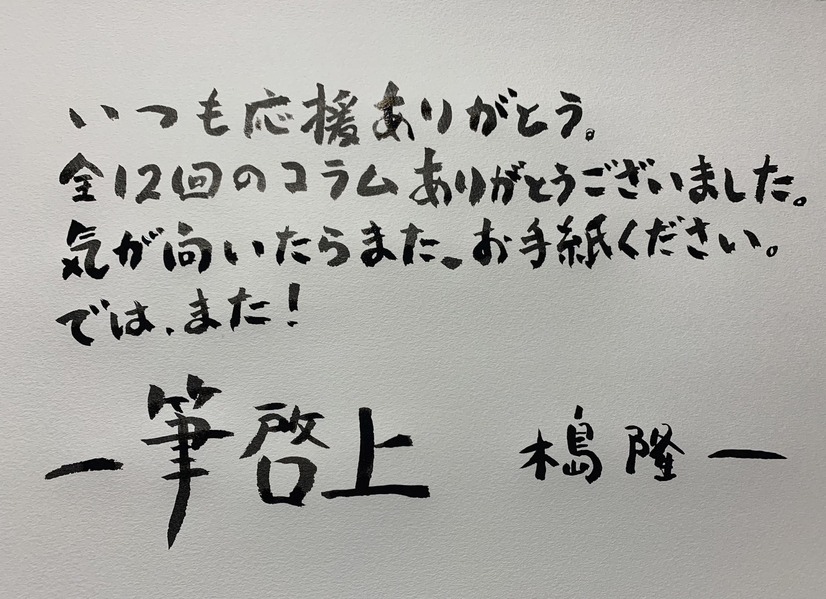 いつも応援ありがとう。
全12回のコラムありがとうございました。
気が向いたらまた、お手紙ください。
では、また!
一筆啓上 槝隆一